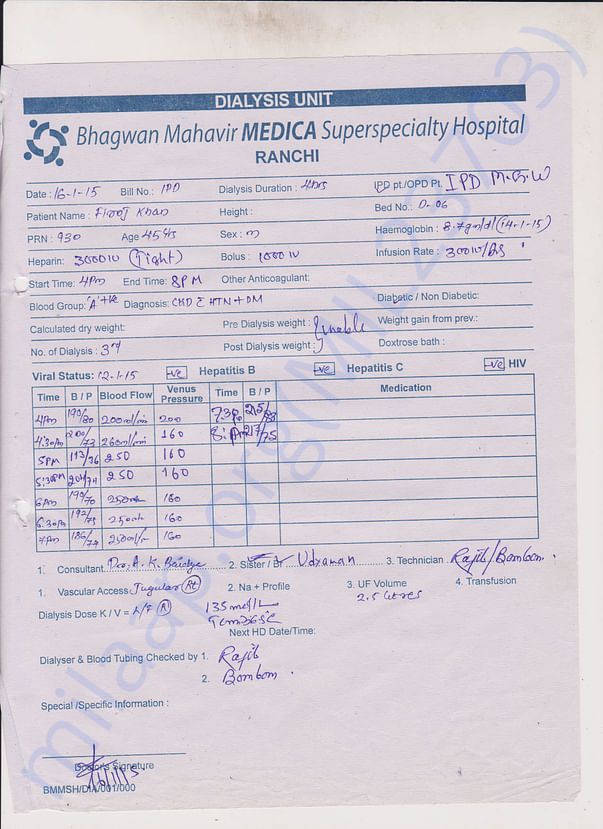 DIALYSIS UNIT
Bhagwan Mahavir MEDICA Superspecialty Hospital
RANCHI
Date : 16-1-15 Bill No.: IPD Dialysis Duration : 4hrs IPD pt./OPD Pt. IPD
Patient Name : Firoj Khan Height : Bed No.: D-06
PRN : 930 Age 45 yrs Sex : m Haemoglobin : 8.7gm/dl (14-1-15)
Heparin: 3000 IU (Tight) Bolus : 1000 IU Infusion Rate : 300 IU/
Start Time: 4Pm End Time: 8PM Other Anticoagulant:
Blood Group: 'A' +ve Diagnosis: CKD c HTN + DM Diabetic / Non Diabetic:
Calculated dry weight: Pre Dialysis weight : Unable Weight gain from prev.:
No. of Dialysis : 3rd Post Dialysis weight : Doxtrose bath :
Viral Status: 12-1-15 -ve Hepatitis B -ve Hepatitis C -ve HIV
Time B / P Blood Flow Venus Pressure Time B / P Medication
4Pm 190/80 200ml/min 200
4:30Pm 200/73 260ml/min 160
5PM 250 160
5:30PM 250 160
6Pm 190/70 250 160
6:30Pm 192/75 250 160
7Pm 186/77 250 160
1. Consultant Dr. A. K. 2. Sister / Br Udyaman 3. Technician Rajib/Bombom
1. Vascular Access Jugular Rt 2. Na + Profile 3. UF Volume 4. Transfusion
Dialysis Dose K / V = 135 2.5
Next HD Date/Time:
Dialyser & Blood Tubing Checked by 1. Rajib
2. Bombom
Special /Specific Information :
Doctor's Signature
16/1/15
BMMSH/DIA/001/000
milaap.org